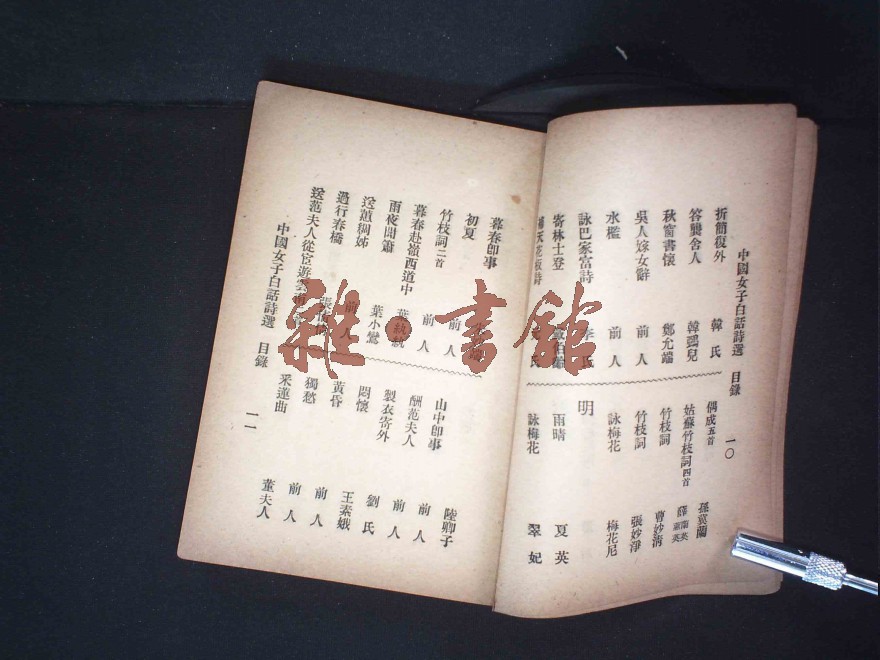 中國女子白話詩選 目錄 一〇
折簡復外 韓氏
答龔舍人 韓鴞兒
秋窗書懷 鄭允端
吳人嫁女辭 前人
水檻 前人
詠巴家富詩 李氏
寄林士登
補天花板詩 氏
偶成五首 孫蕙蘭
姑蘇竹枝詞四首 薛蘭英 蕙英
竹枝詞 曹妙清
竹枝詞 張妙淨
詠梅花 梅花尼
明
雨晴 夏英
詠梅花 翠妃
暮春卽事
初夏 前人
竹枝詞二首 前人
暮春赴嶺西道中 葉紈紈
雨夜聞簫 葉小鸞
送蕴綢姊 前人
過行春橋
送范夫人從宦遊雲
山中卽事 陸卿子
酬范夫人 前人
製衣寄外 前人
悶懷 劉氏
黃昏 王素娥
獨愁 前人
采蓮曲 前人
董夫人
中國女子白話詩選 目錄 一一
雜·書館